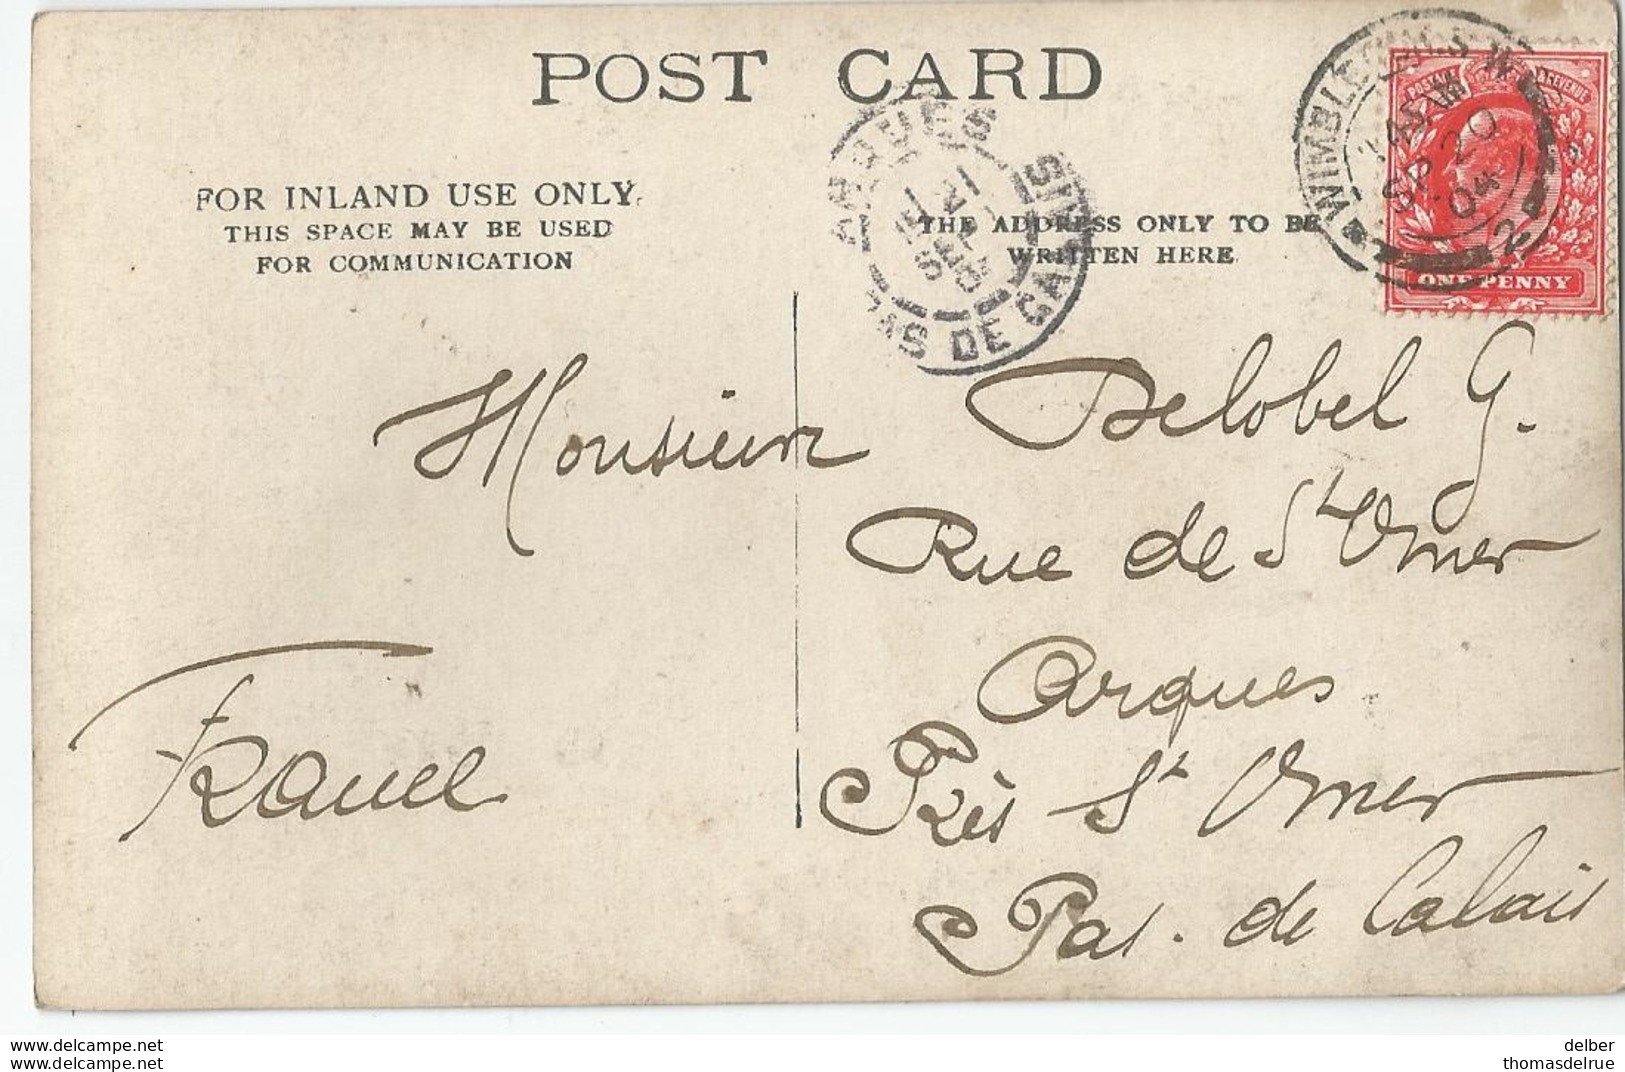 POST CARD
FOR INLAND USE ONLY.
THIS SPACE MAY BE USED
FOR COMMUNICATION
THE ADDRESS ONLY TO BE
WRITTEN HERE
WIMBLEDON S.W.
SP 20
04
ONE PENNY
ARQUES
21
SEPT
PAS DE CALAIS
Monsieur Delobel G.
Rue de St Omer
Arques
Près St Omer
Pas. de Calais
France
www.delcampe.net
www.delcampe.net
delber
thomasdelrue